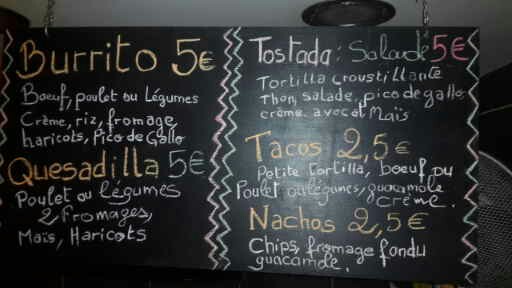 Burrito 5€
Bœuf, poulet ou Légumes
Crème, riz, fromage,
haricots, Pico de Gallo
Quesadilla 5€
Poulet ou légumes
2 Fromages,
Maïs, Haricots
Tostada: Salade 5€
Tortilla croustillante
Thon, salade, pico de gallo
crème, avocat, Maïs
Tacos 2,5€
Petite tortilla, bœuf ou
Poulet ou légumes, guacamole
crème.
Nachos 2,5€
Chips, fromage fondu
guacamole.